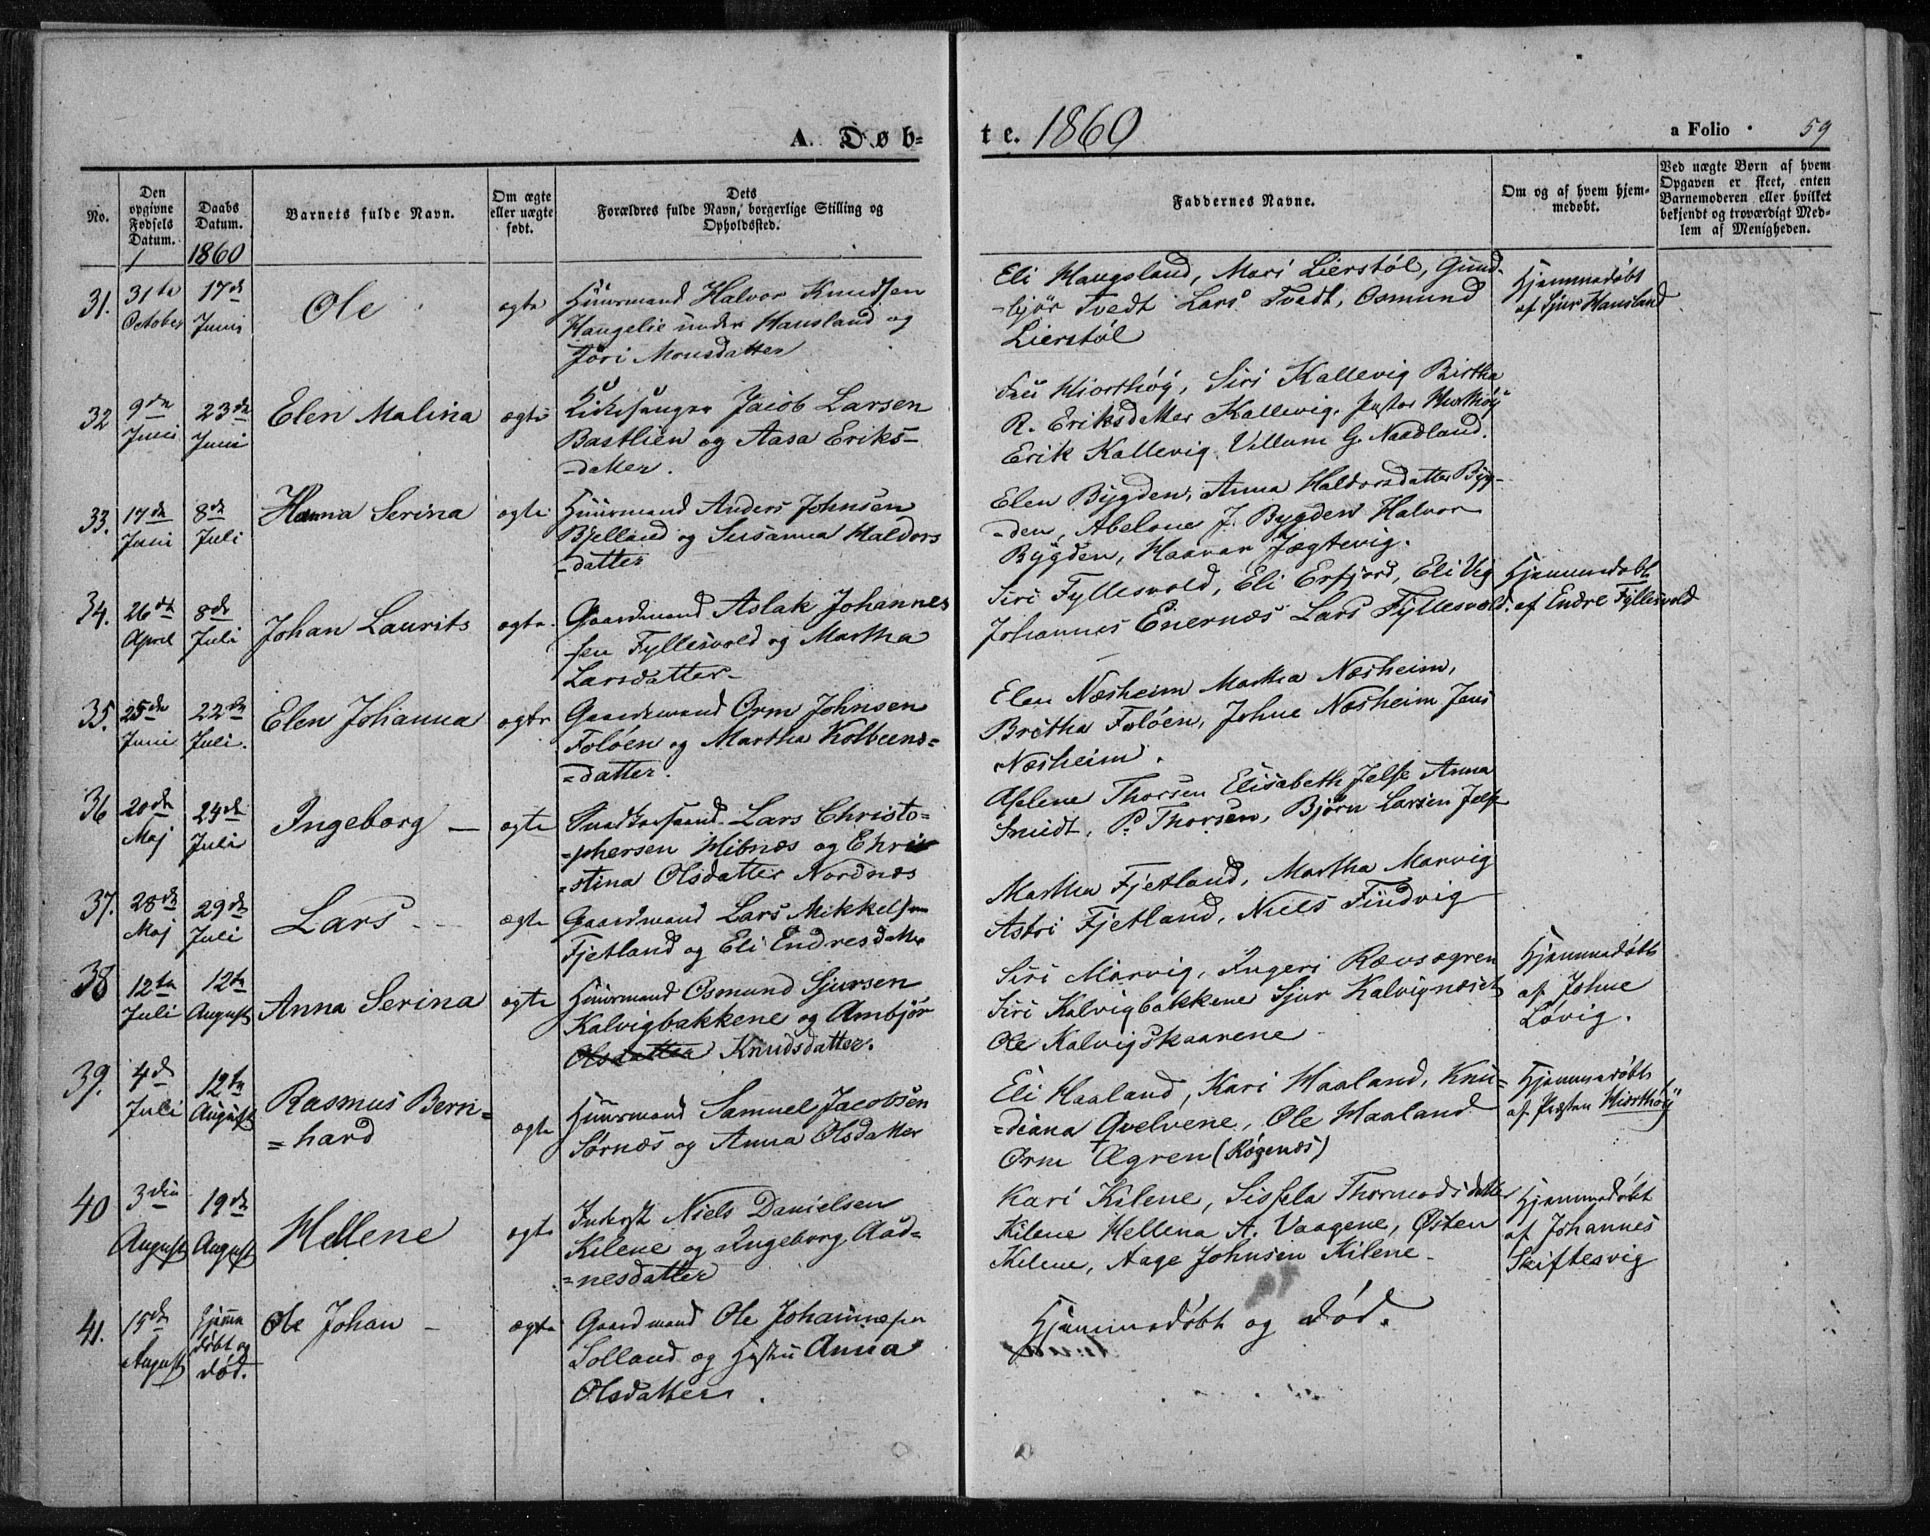 A. Døb-
te. 1860
a Folio
59
No.
Den opgivne Fødsels Datum.
Daabs Datum.
1860
Barnets fulde Navn.
Om ægte eller uægte født.
Dets
Forældres fulde Navn, borgerlige Stilling og Opholdssted.
Faddernes Navne.
Om og af hvem hjemmedøbt.
Ved uægte Børn af hvem
Opgaven er skeet, enten
Barnemoderen eller hvilket
bekjendt og troværdigt Med-
lem af Menigheden.
31.
31te October
17de Juni
Ole
ægte
Huusmand Halvor Knudsen
Haugelie under Hausland og
Jori Monsdatter
Eli Haugsland, Mari Lierstøl, Gund-
-bjør Tvedt Lars Tvedt, Osmund
Lierstøl
Hjemmedøbt
af Sjur Hausland
32
9de Juni
23de Juni
Elen Malina
ægte
Kirkesanger Jacob Larsen
Bastlien og Aasa Eriks-
-datter.
Fru Hiorthøy, Siri Kallevig Birtha
R. Eriksdatter Kallevig. Pastor Hiorthøy
Erik Kallevig Villum G. Naadland.
33.
17de Juni
8de Juli
Hanna Serina
ægte
Huusmand Anders Johnsen
Bjelland og Susanna Haldors
-datter
Elen Bygden, Anna Haldorsdatter Byg-
-den, Abelone J. Bygden Halvor
Bygden, Haavar Jægtevig.
34.
26de April
8de Juli
Johan Laurits
ægte
Gaardmand Aslak Johannes
sen Fyllesvold og Martha
Larsdatter
Siri Fyllesvold, Eli Erfjord, Eli Vig
Johannes Enernæs Lars Fyllesvold.
Hjemmedøbt
af Endre Fyllesvold
35.
25de Juni
22de Juli.
Elen Johanna
ægte
Gaardmand Orm Johnsen
Foløen og Martha Kolbeens-
=datter.
Elen Næsheim Martha Næsheim,
Britha Foløen, Johne Næsheim Jens
Næsheim.
36
20de Maj
24de Juli
Ingeborg
ægte
Lars Christo-
-phersen Hibnæs og Chri
=stina Olsdatter Nordnæs
Aslene Thorsen Elisabeth Jelse Anna
Smidt, P. Thorsen, Bjørn Larsen Jelse
37.
28de Maj
29de Juli
Lars
ægte
Gaardmand Lars Mikkelsen
Fjetland og Eli Endresdatter
Martha Fjetland, Martha Marvig
Astri Fjetland, Niels Findvig
38
12te Juli
12te August
Anna Serina
ægte
Huusmand Osmund Sjursen
Kalvigbakkene og Ambjør
Olsdatter Knudsdatter.
Siri Marvig, Ingeri Rævsagren
Siri Kalvigbakkene Sjur Kalvignæset
Ole Kalvigskaarene
Hjemmedøbt
af Johne
Løvig.
39.
4de Juli
12te August
Rasmus Bern-
=hard
ægte
Huusmand Samuel Jacobsen
Sørnæs og Anna Olsdatter
Eli Haaland, Kari Haaland, Knu-
=diana Qvelvene, Ole Haaland
Orm Ægren (Røgenæs)
Hjemmedøbt
af Præsten Hiorthøy
40
3die August
19de August
Hellene
ægte
Inderst Niels Danielsen
Kilene og Ingeborg Aad-
=nesdatter
Kari Kilene, Sissela Thormodsdatter
Kilene Hellena A. Vaagene, Østen
Kilene, Aage Johnsen Kilene
Hjemmedøbt
af Johannes
Skiftesvig
41.
15de August
Hjemme
døbt og
død.
Ole Johan
ægte
Gaardmand Ole Johannesen
Solland og Hustru Anna
Olsdatter.
Hjemmedøbt og død.